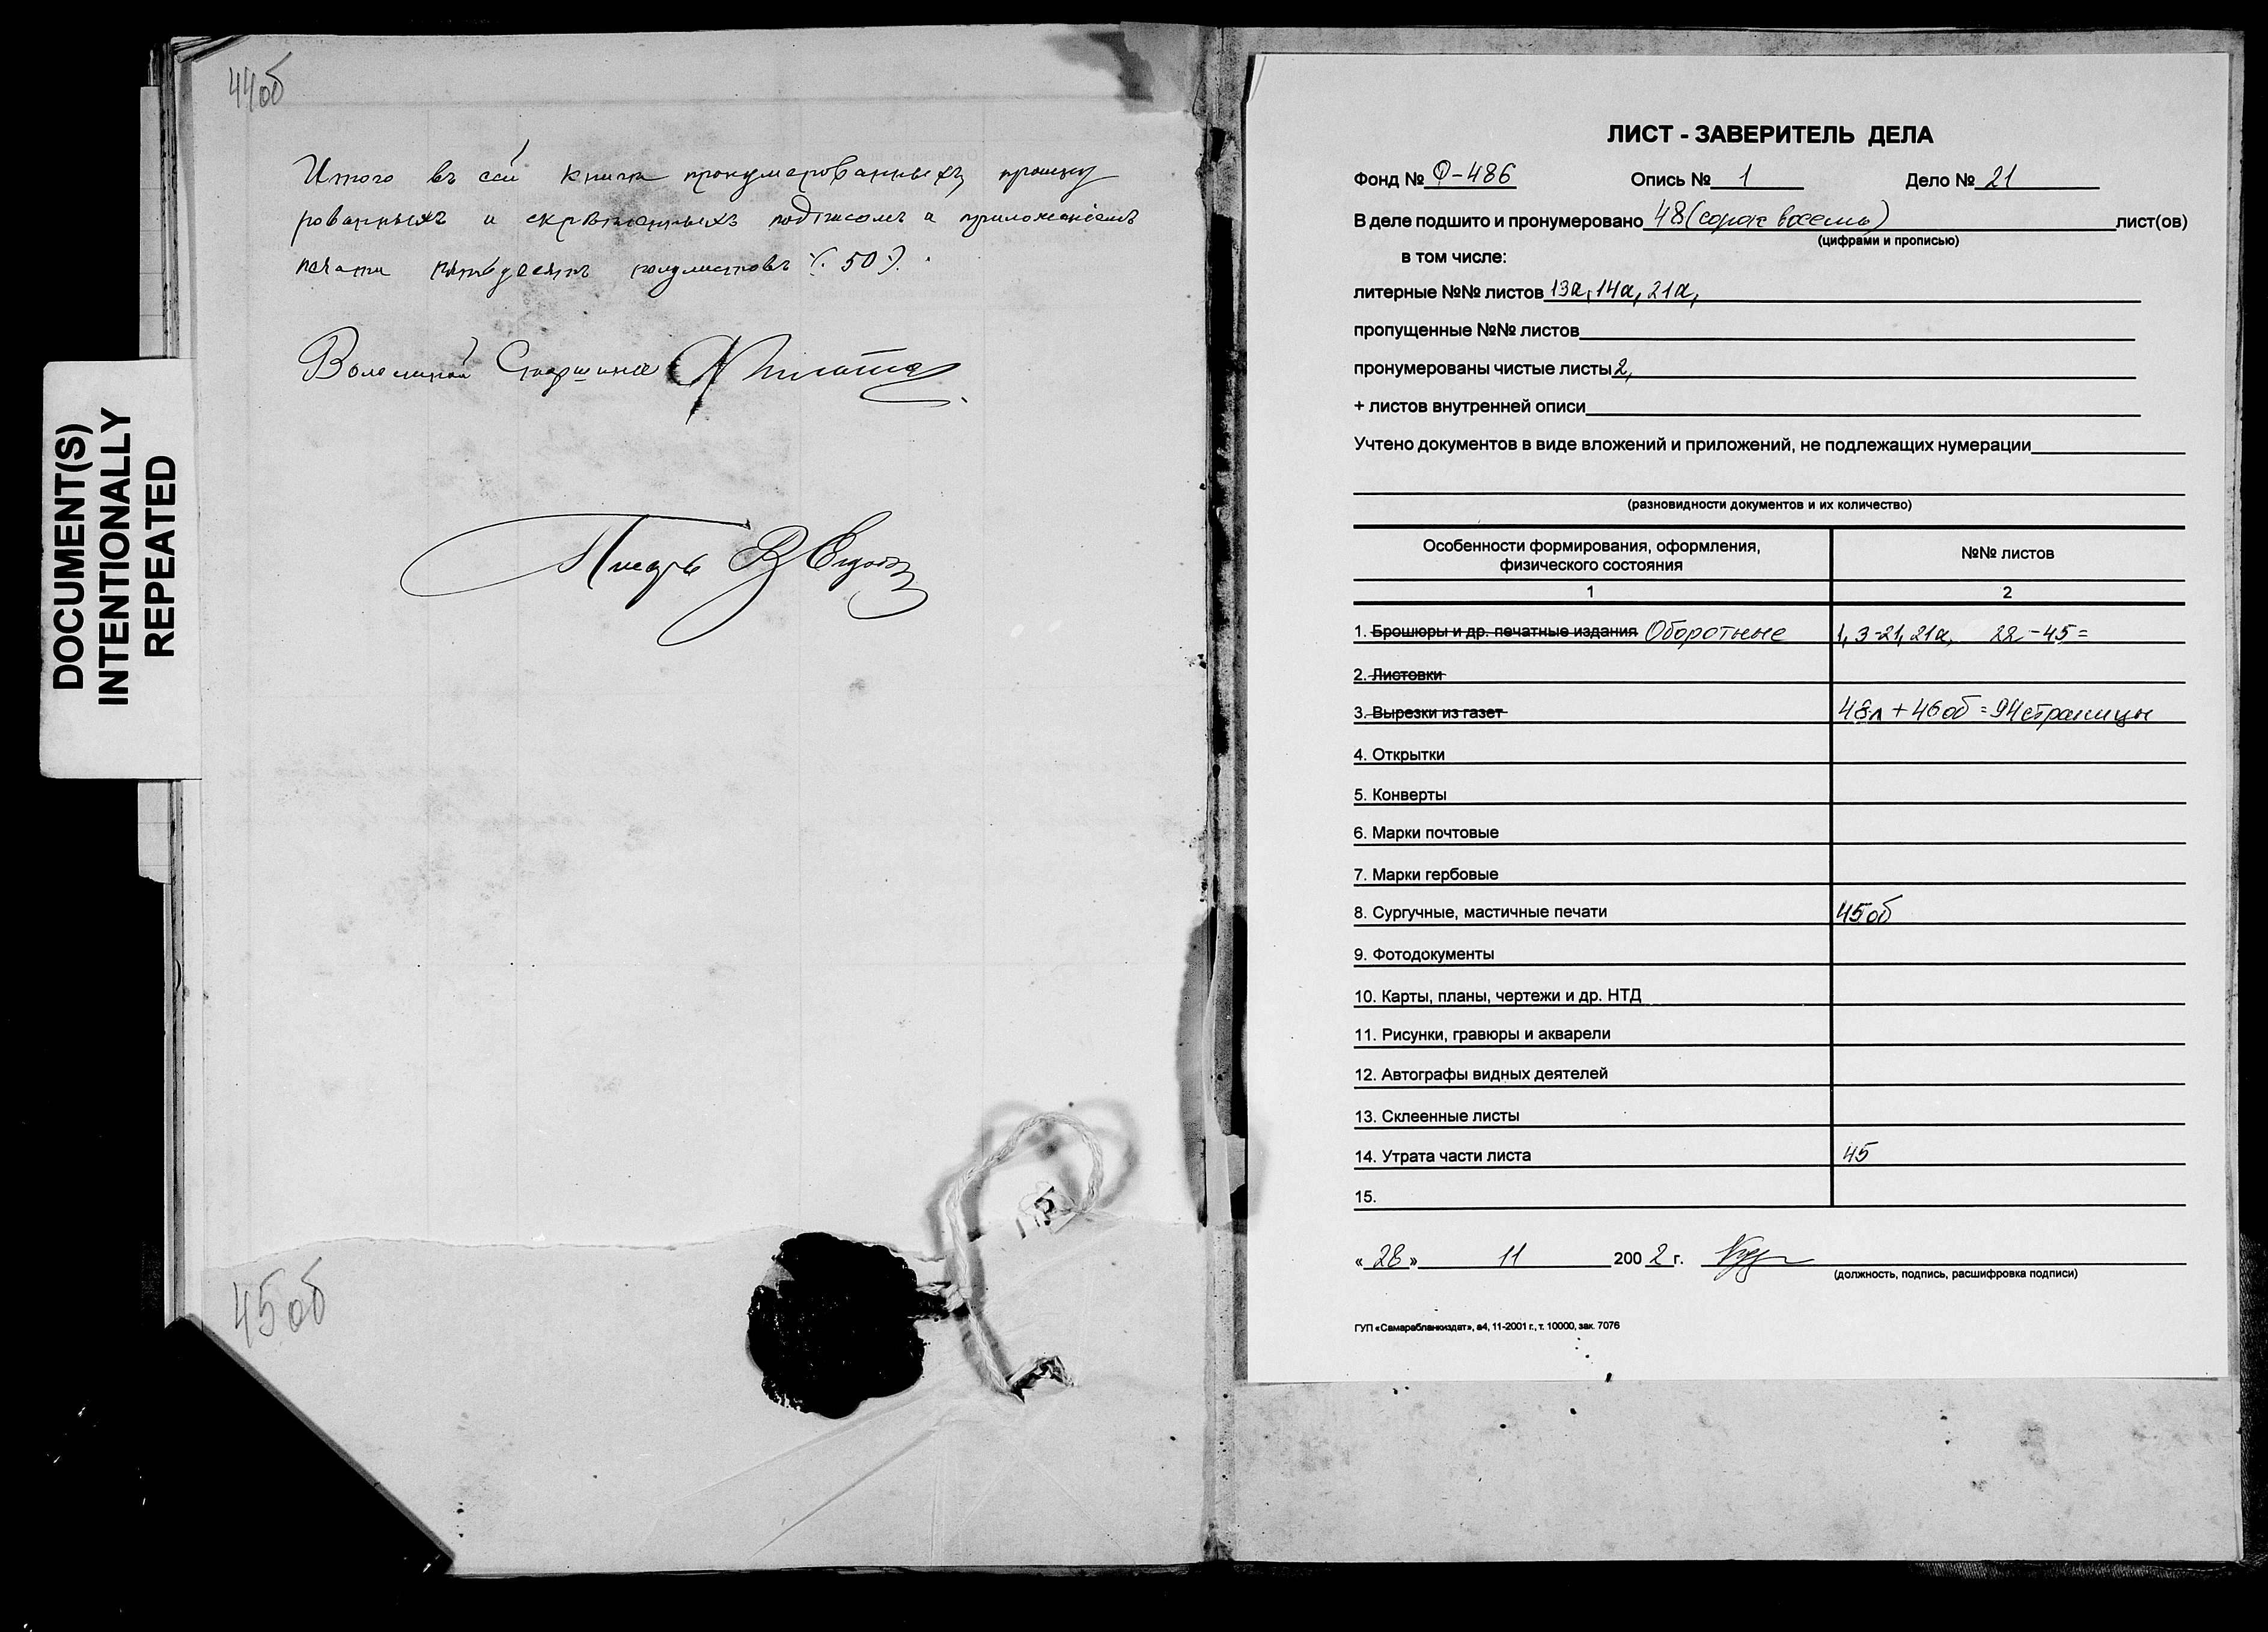 44об
Итого въ сей книги пронумерованныхъ, прошну
рованныхъ и скрѣпленныхъ подписомъ и приложеніемъ
печати пятьдесятъ полулистовъ (50).
Волостной Старшина
Писарь В
45об
DOCUMENT(S)
INTENTIONALLY
REPEATED
ЛИСТ - ЗАВЕРИТЕЛЬ ДЕЛА
Фонд № Ф-486 Опись № 1 Дело № 21
В деле подшито и пронумеровано 48 (сорок восемь) лист(ов)
(цифрами и прописью)
в том числе:
литерные №№ листов 13а, 14а, 21а,
пропущенные №№ листов
пронумерованы чистые листы 2,
+ листов внутренней описи
Учтено документов в виде вложений и приложений, не подлежащих нумерации
(разновидности документов и их количество)
Особенности формирования, оформления, №№ листов
физического состояния
1 2
1. Брошюры и др. печатные издания Оборотные 1, 3-21, 21а, 22-45=
2. Листовки
3. Вырезки из газет 48л + 46об = 94 страницы
4. Открытки
5. Конверты
6. Марки почтовые
7. Марки гербовые
8. Сургучные, мастичные печати 45об
9. Фотодокументы
10. Карты, планы, чертежи и др. НТД
11. Рисунки, гравюры и акварели
12. Автографы видных деятелей
13. Склеенные листы
14. Утрата части листа 45
15.
«28» 11 2002 г.
(должность, подпись, расшифровка подписи)
ГУП «Самарабланкиздат», а4, 11-2001 г., т. 10000, зак. 7076